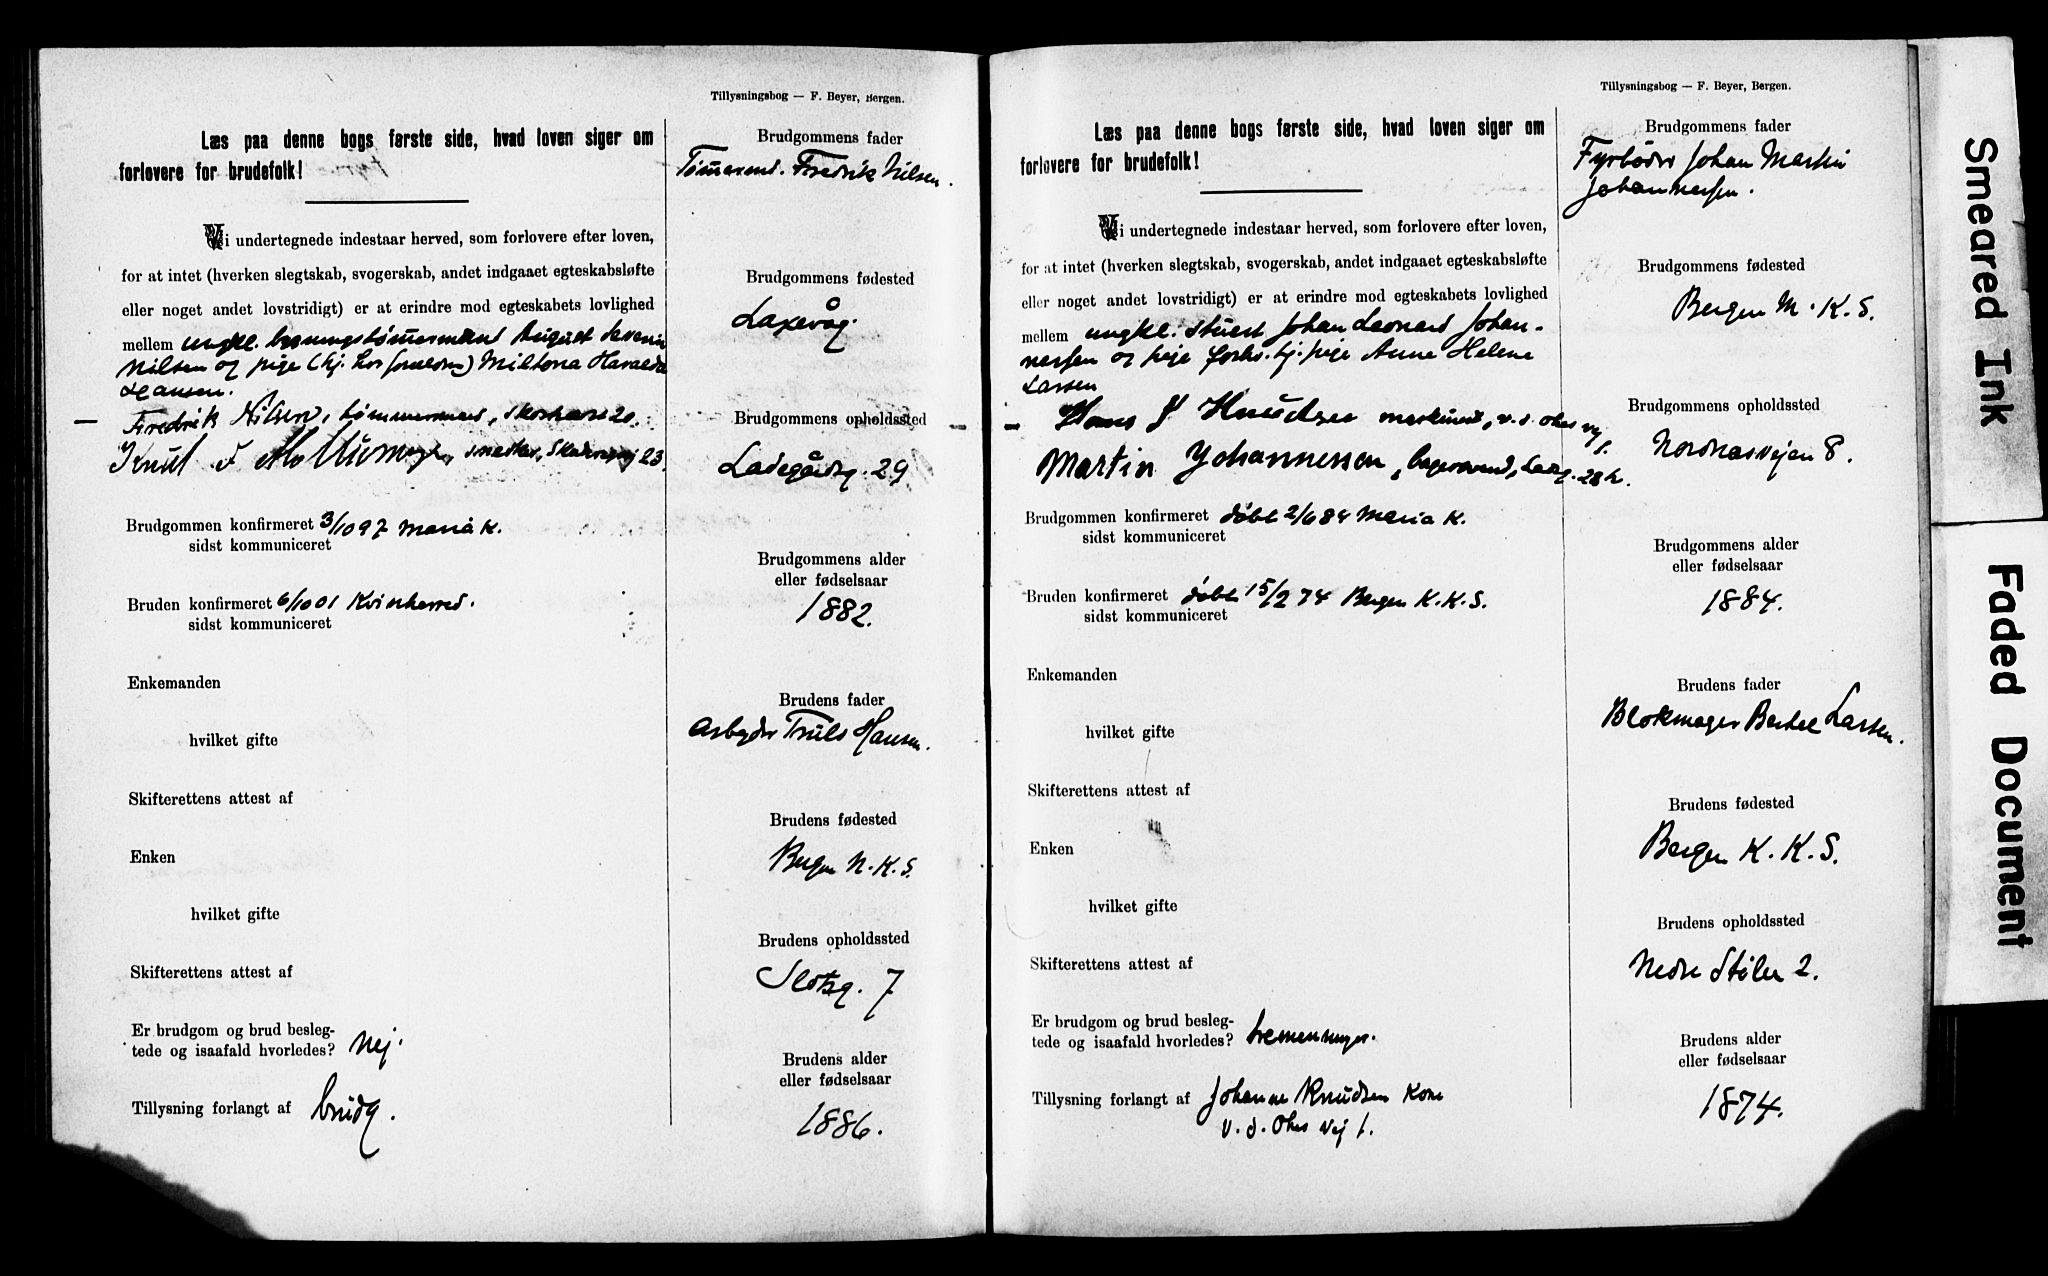 Tillysningsbog — F. Beyer, Bergen.
Læs paa denne bogs første side, hvad loven siger om
forlovere for brudefolk!
Vi undertegnede indestaar herved, som forlovere efter loven,
for at intet (hverken slegtskab, svogerskab, andet indgaaet egteskabsløfte
eller noget andet lovstridigt) er at erindre mod egteskabets lovlighed
mellem ungkl. bygningstømmermand August Severin
Nilsen og pige (hj. hos forældren) Miltona Haralda
Hansen.
Fredrik Nilsen, tømmermand,
Knut F snedker, 23.
Brudgommen konfirmeret 3/10 97 Maria K.
sidst kommuniceret
Bruden konfirmeret 6/10 01 Kvinherred.
sidst kommuniceret
Enkemanden
hvilket gifte
Skifterettens attest af
Enken
hvilket gifte
Skifterettens attest af
Er brudgom og brud besleg-
tede og isaafald hvorledes? Nej.
Tillysning forlangt af brudg.
Brudgommens fader
Tømmermd. Fredrik Nilsen.
Brudgommens fødested
Laxevåg.
Brudgommens opholdssted
Ladegårdsg. 29
Brudgommens alder
eller fødselsaar
1882.
Brudens fader
Arbejder Truls Hansen.
Brudens fødested
Bergen N.K.S.
Brudens opholdssted
Slotsg. 7
Brudens alder
eller fødselsaar
1886.
Tillysningsbog — F. Beyer, Bergen.
Læs paa denne bogs første side, hvad loven siger om
forlovere for brudefolk!
Vi undertegnede indestaar herved, som forlovere efter loven,
for at intet (hverken slegtskab, svogerskab, andet indgaaet egteskabsløfte
eller noget andet lovstridigt) er at erindre mod egteskabets lovlighed
mellem ungkl. stuert Johan Leonard Johan-
nessen og pige forhv. tj. pige Anne Helene
Larsen
Hans J Knudsen maskinist, v. d. Ohes vej 1.
Martin Johannessen, 28 b.
Brudgommen konfirmeret døbt 2/6 84 Maria K.
sidst kommuniceret
Bruden konfirmeret døbt 15/2 74 Bergen K.K.S.
sidst kommuniceret
Enkemanden
hvilket gifte
Skifterettens attest af
Enken
hvilket gifte
Skifterettens attest af
Er brudgom og brud besleg-
tede og isaafald hvorledes? tremenninger.
Tillysning forlangt af Johanne Knudsen Kone
v. d. Ohes vej 1.
Brudgommens fader
Fyrbøder Johan Martin
Johannessen.
Brudgommens fødested
Bergen M.K.S.
Brudgommens opholdssted
Nordnæsvejen 8.
Brudgommens alder
eller fødselsaar
1884.
Brudens fader
Blokmager Bertel Larsen.
Brudens fødested
Bergen K.K.S.
Brudens opholdssted
Nedre Støler 2.
Brudens alder
eller fødselsaar
1874.
Smeared Ink
Faded Document